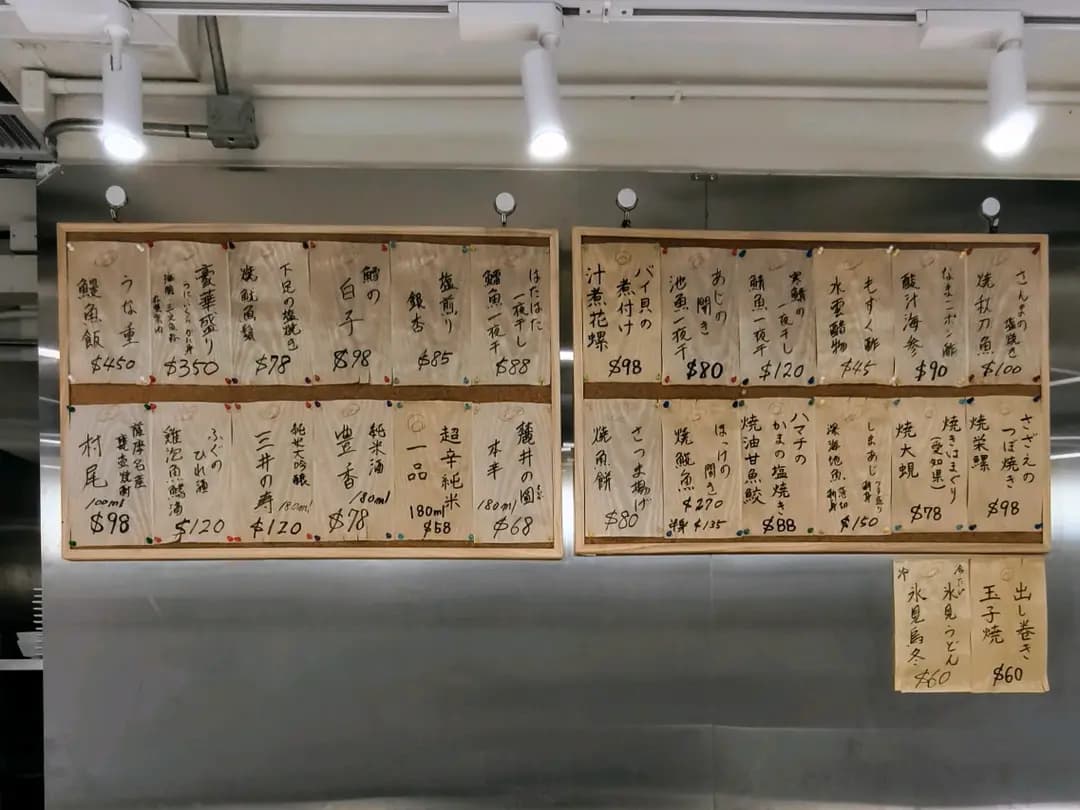 うな重
鰻魚飯
$450
豪華盛り
うに いくら かに身
$350
下足の塩焼き
焼魷魚鬚
$78
鱈の
白子
$98
塩煎り
銀杏
$85
はたはた
一夜干し
鱩魚一夜干
$88
薩摩名産
村尾
100ml
$98
ふぐの
ひれ酒
雞泡魚鰭酒
$120
純米大吟醸
三井の寿
180ml
$120
純米酒
豊香
180ml
$78
超辛純米
一品
180ml
$58
麓井の圓
本辛
180ml
$68
バイ貝の
煮付け
汁煮花螺
$98
あじの
開き
池魚一夜干
$80
寒鯖の
一夜干し
鯖魚一夜干
$120
もずく酢
水雲醋物
$45
なまこポン酢
酸汁海参
$90
さんまの
塩焼き
焼秋刀魚
$100
さつま揚げ
焼魚餅
$80
ほっけの
開き
焼𩸽魚
$270
半身 $135
ハマチの
かまの塩焼き
焼油甘魚鮫
$88
しまあじ
深海池魚
$150
焼きはまぐり
(愛知県)
焼大蜆
$78
さざえの
つぼ焼き
焼栄螺
$98
冷たい
氷見うどん
冷
氷見烏冬
$60
出し巻き
玉子焼
$60